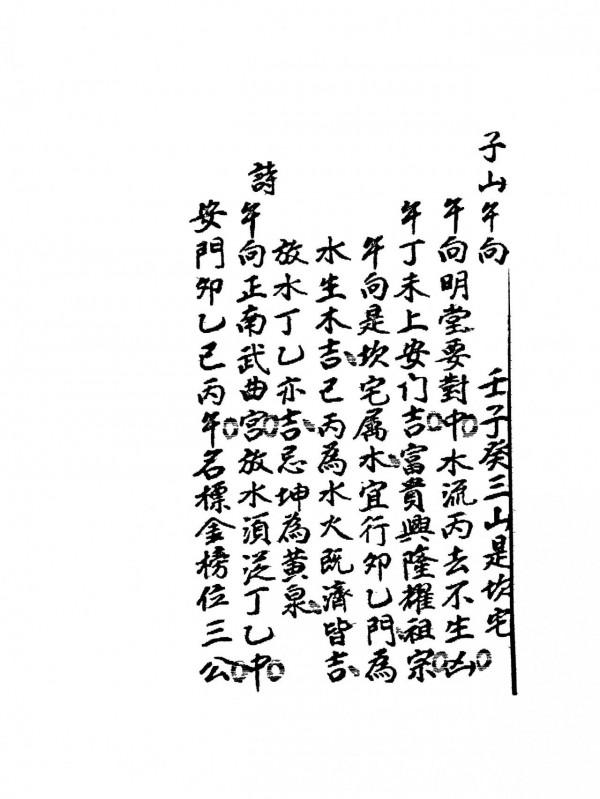 子山午向　壬子癸三山是坎宅
午向明堂要對中水流丙去不生凶
午丁未上安门吉富貴興隆耀祖宗
午向是坎宅属水宜行卯乙門為
水生木吉巳丙為水火既濟皆吉
放水丁乙亦吉忌坤為黄泉
詩
午向正南武曲宫放水須从丁乙中
安門卯乙巳丙午名標金榜位三公